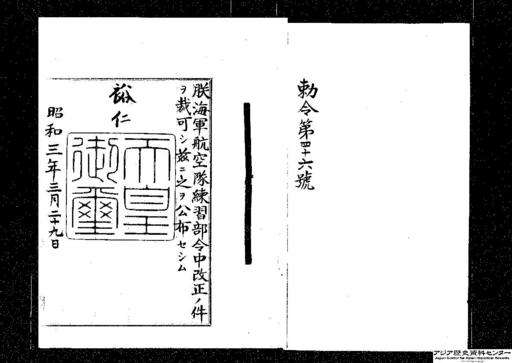 勅令第四十六號
朕海軍航空隊練習部令中改正ノ件
ヲ裁可シ茲ニ之ヲ公布セシム
裕仁
天皇
御璽
昭和三年三月二十九日
アジア歴史資料センター
Japan Center for Asian Historical Records